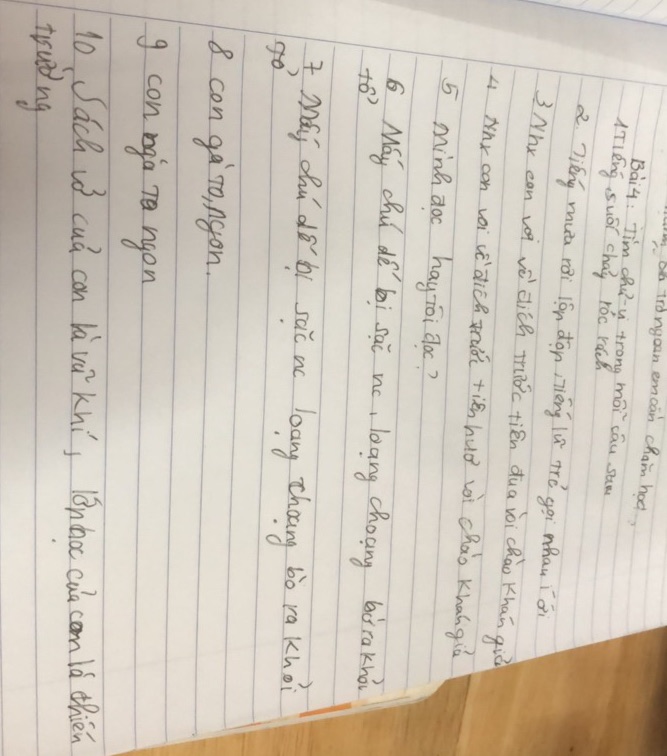 trở ngoan em cần chăm học,
Bài 4: Tìm chủ-vị trong mỗi câu sau
1 Tiếng suối chảy róc rách
2. Tiếng mưa rơi lộp độp, tiếng lũ trẻ gọi nhau í ới
3 Nhx con voi về đích trước tiên đua vòi chào khán giả
4 Nhx con voi về đích trước tiên huơ vòi chào khán giả
5 Mình đọc hay tôi đọc?
6 Mấy chú dế bị sặc nc, loạng choạng bò ra khỏi
tổ
7 Mấy chú dế bị sặc nc loạng choạng bò ra khỏi
tổ
8 con gà to, ngon.
9 con gà to ngon
10, Sách vở của con là vũ khí, lớp học của con là chiến
trường